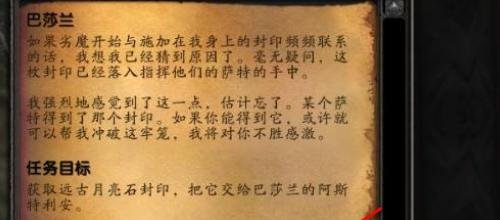 巴莎兰
如果劣魔开始与施加在我身上的封印频频联系
的话，我想我已经猜到原因了。毫无疑问，这
枚封印已经落入指挥他们的萨特的手中。
我强烈地感觉到了这一点，估计忘了。某个萨
特得到了那个封印。如果你能得到它，或许就
可以帮我冲破这牢笼，我将对你不胜感激。
任务目标
获取远古月亮石封印，把它交给巴莎兰的阿斯
特利安。